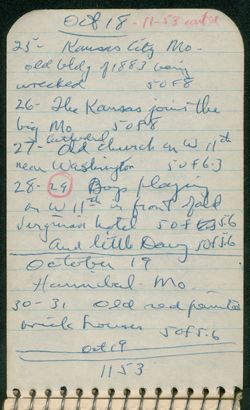 Oct 18 - 11-53 cont'd
25- Kansas City Mo -
old bldg of 1883 being
wrecked 5 of 8
26- The Kansas joins the
big Mo 5 of 8
27- Old church on W 11th
near Washington 5 of 6.3
28-29 Boys playing
on W 11th in front of old
hotel 5 of 5.6
and little Davy 5 of 5.6
October 19
Hannibal Mo.
30-31 old red painted
brick houses
5 of 5.6
Oct 19
1153